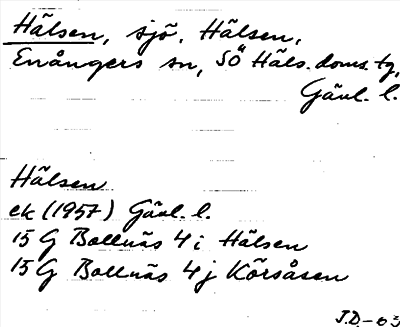 Hälsen, sjö. Hälsen,
Enångers sn, SÖ Häls. doms. tg,
Gävl. l.
Hälsen
ek (1957) Gävl. l.
15 G Bollnäs 4 i Hälsen
15 G Bollnäs 4 j Körsåsen
J.D-63